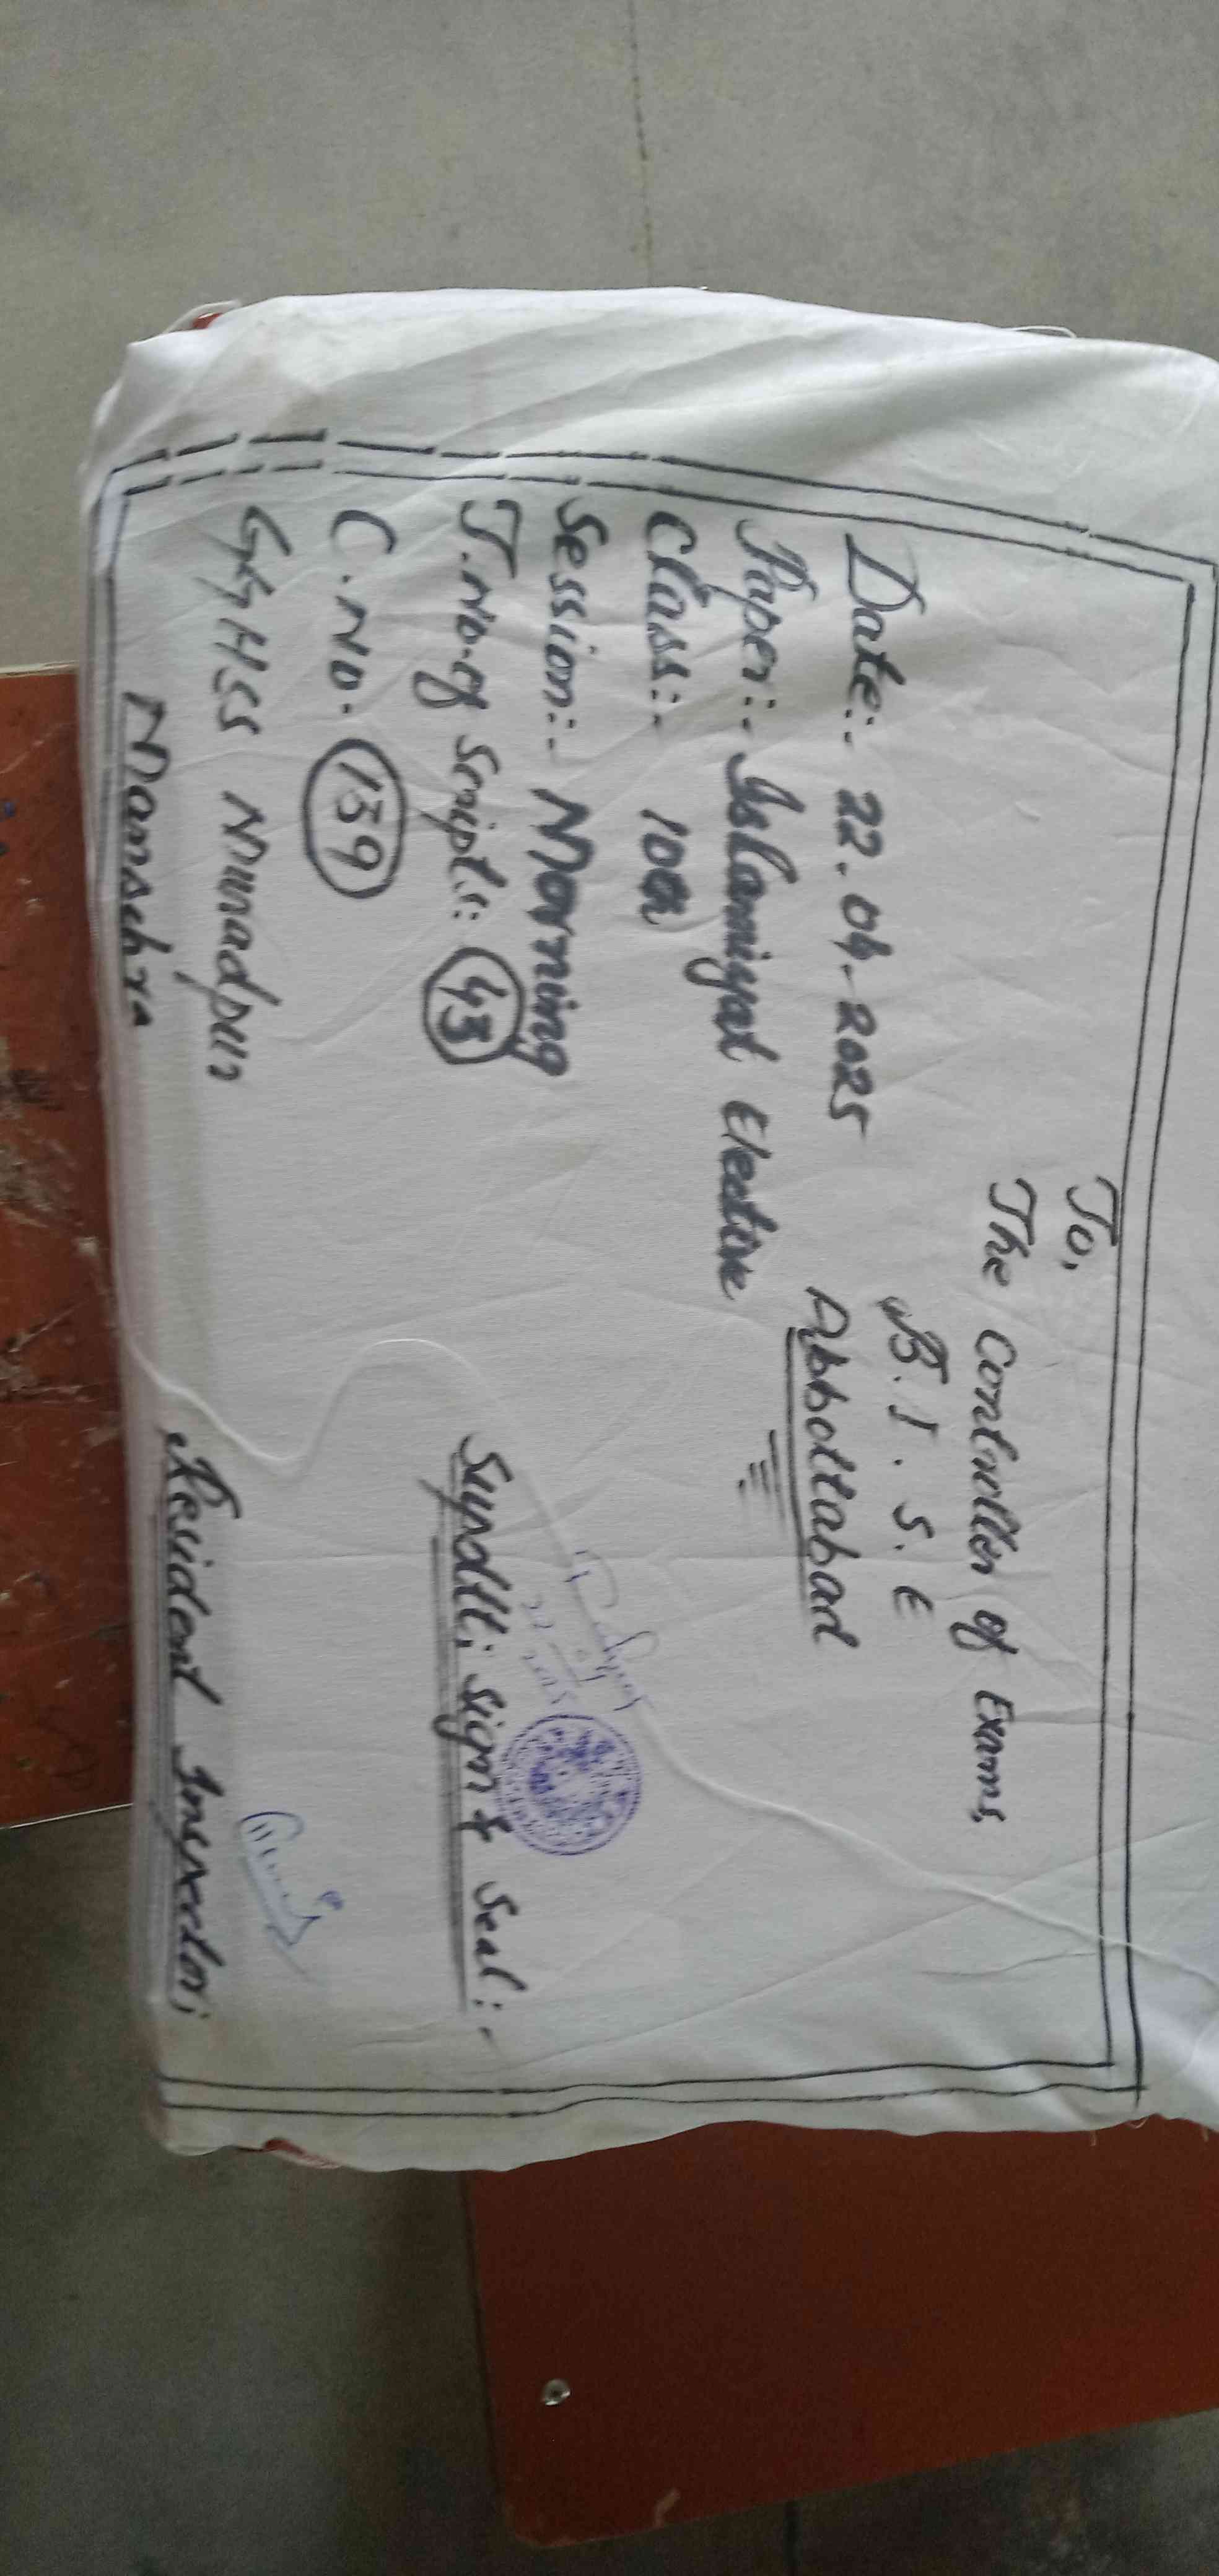 To,
The Controller of Exams,
B.I.S.E
Abbottabad
Date:- 22.04.2025
Paper:- Islamiyat Elective
Class:- 10th
Session:- Morning
T.No.of Scripts: 43
C.No. 139
GGHSS Muradpur
Mansehra
Supdtt: sign & Seal:-
Resident Inspector: